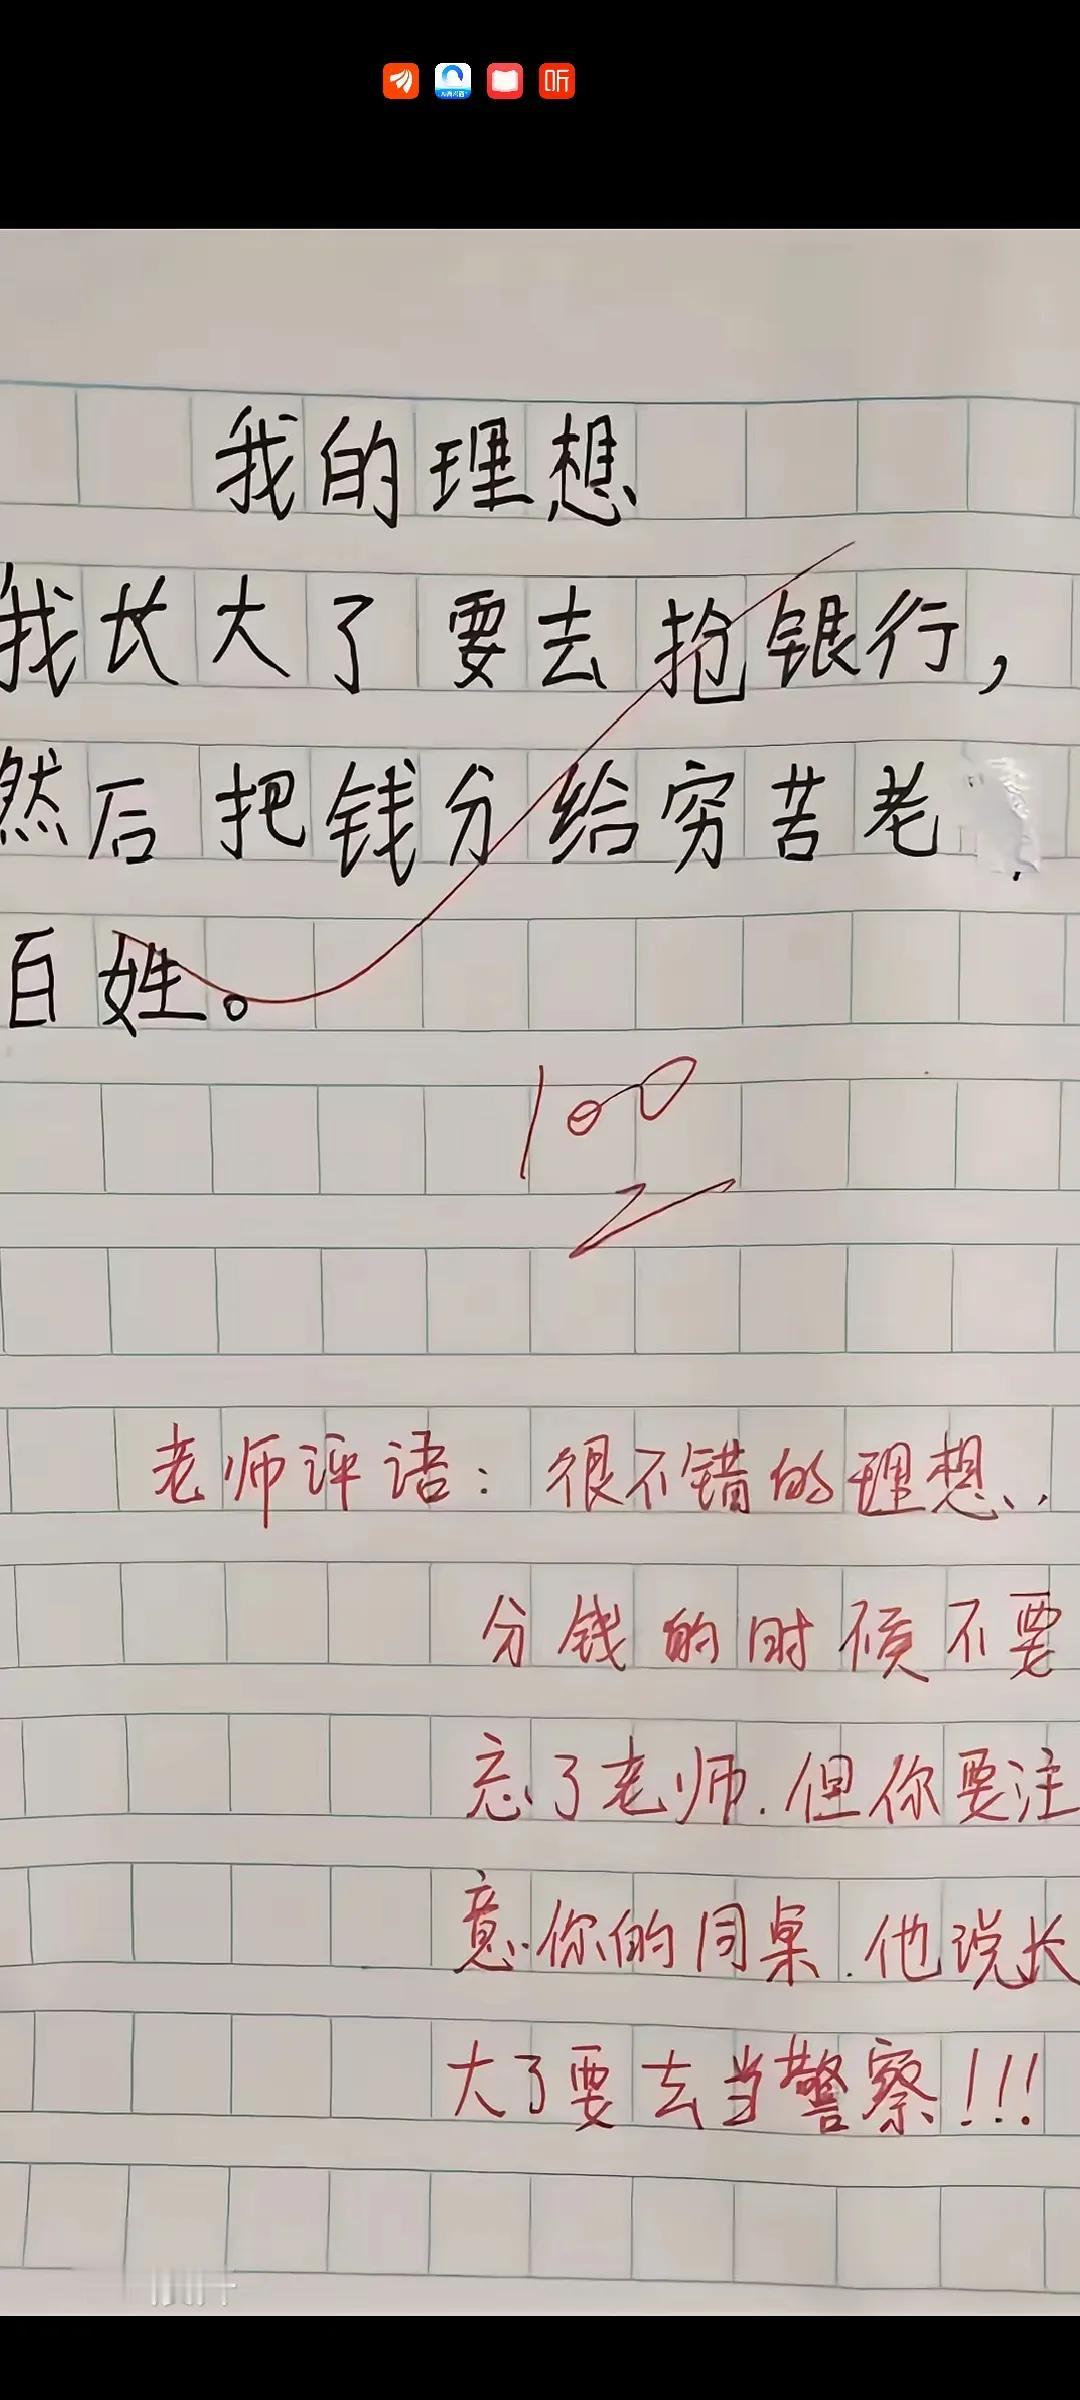 听
我的理想
我长大了要去抢银行,
然后把钱分给穷苦老
百姓。
100
老师评语:很不错的理想..
分钱的时候不要
忘了老师.但你要注
意你的同桌.他说长
大了要去当警察!!!